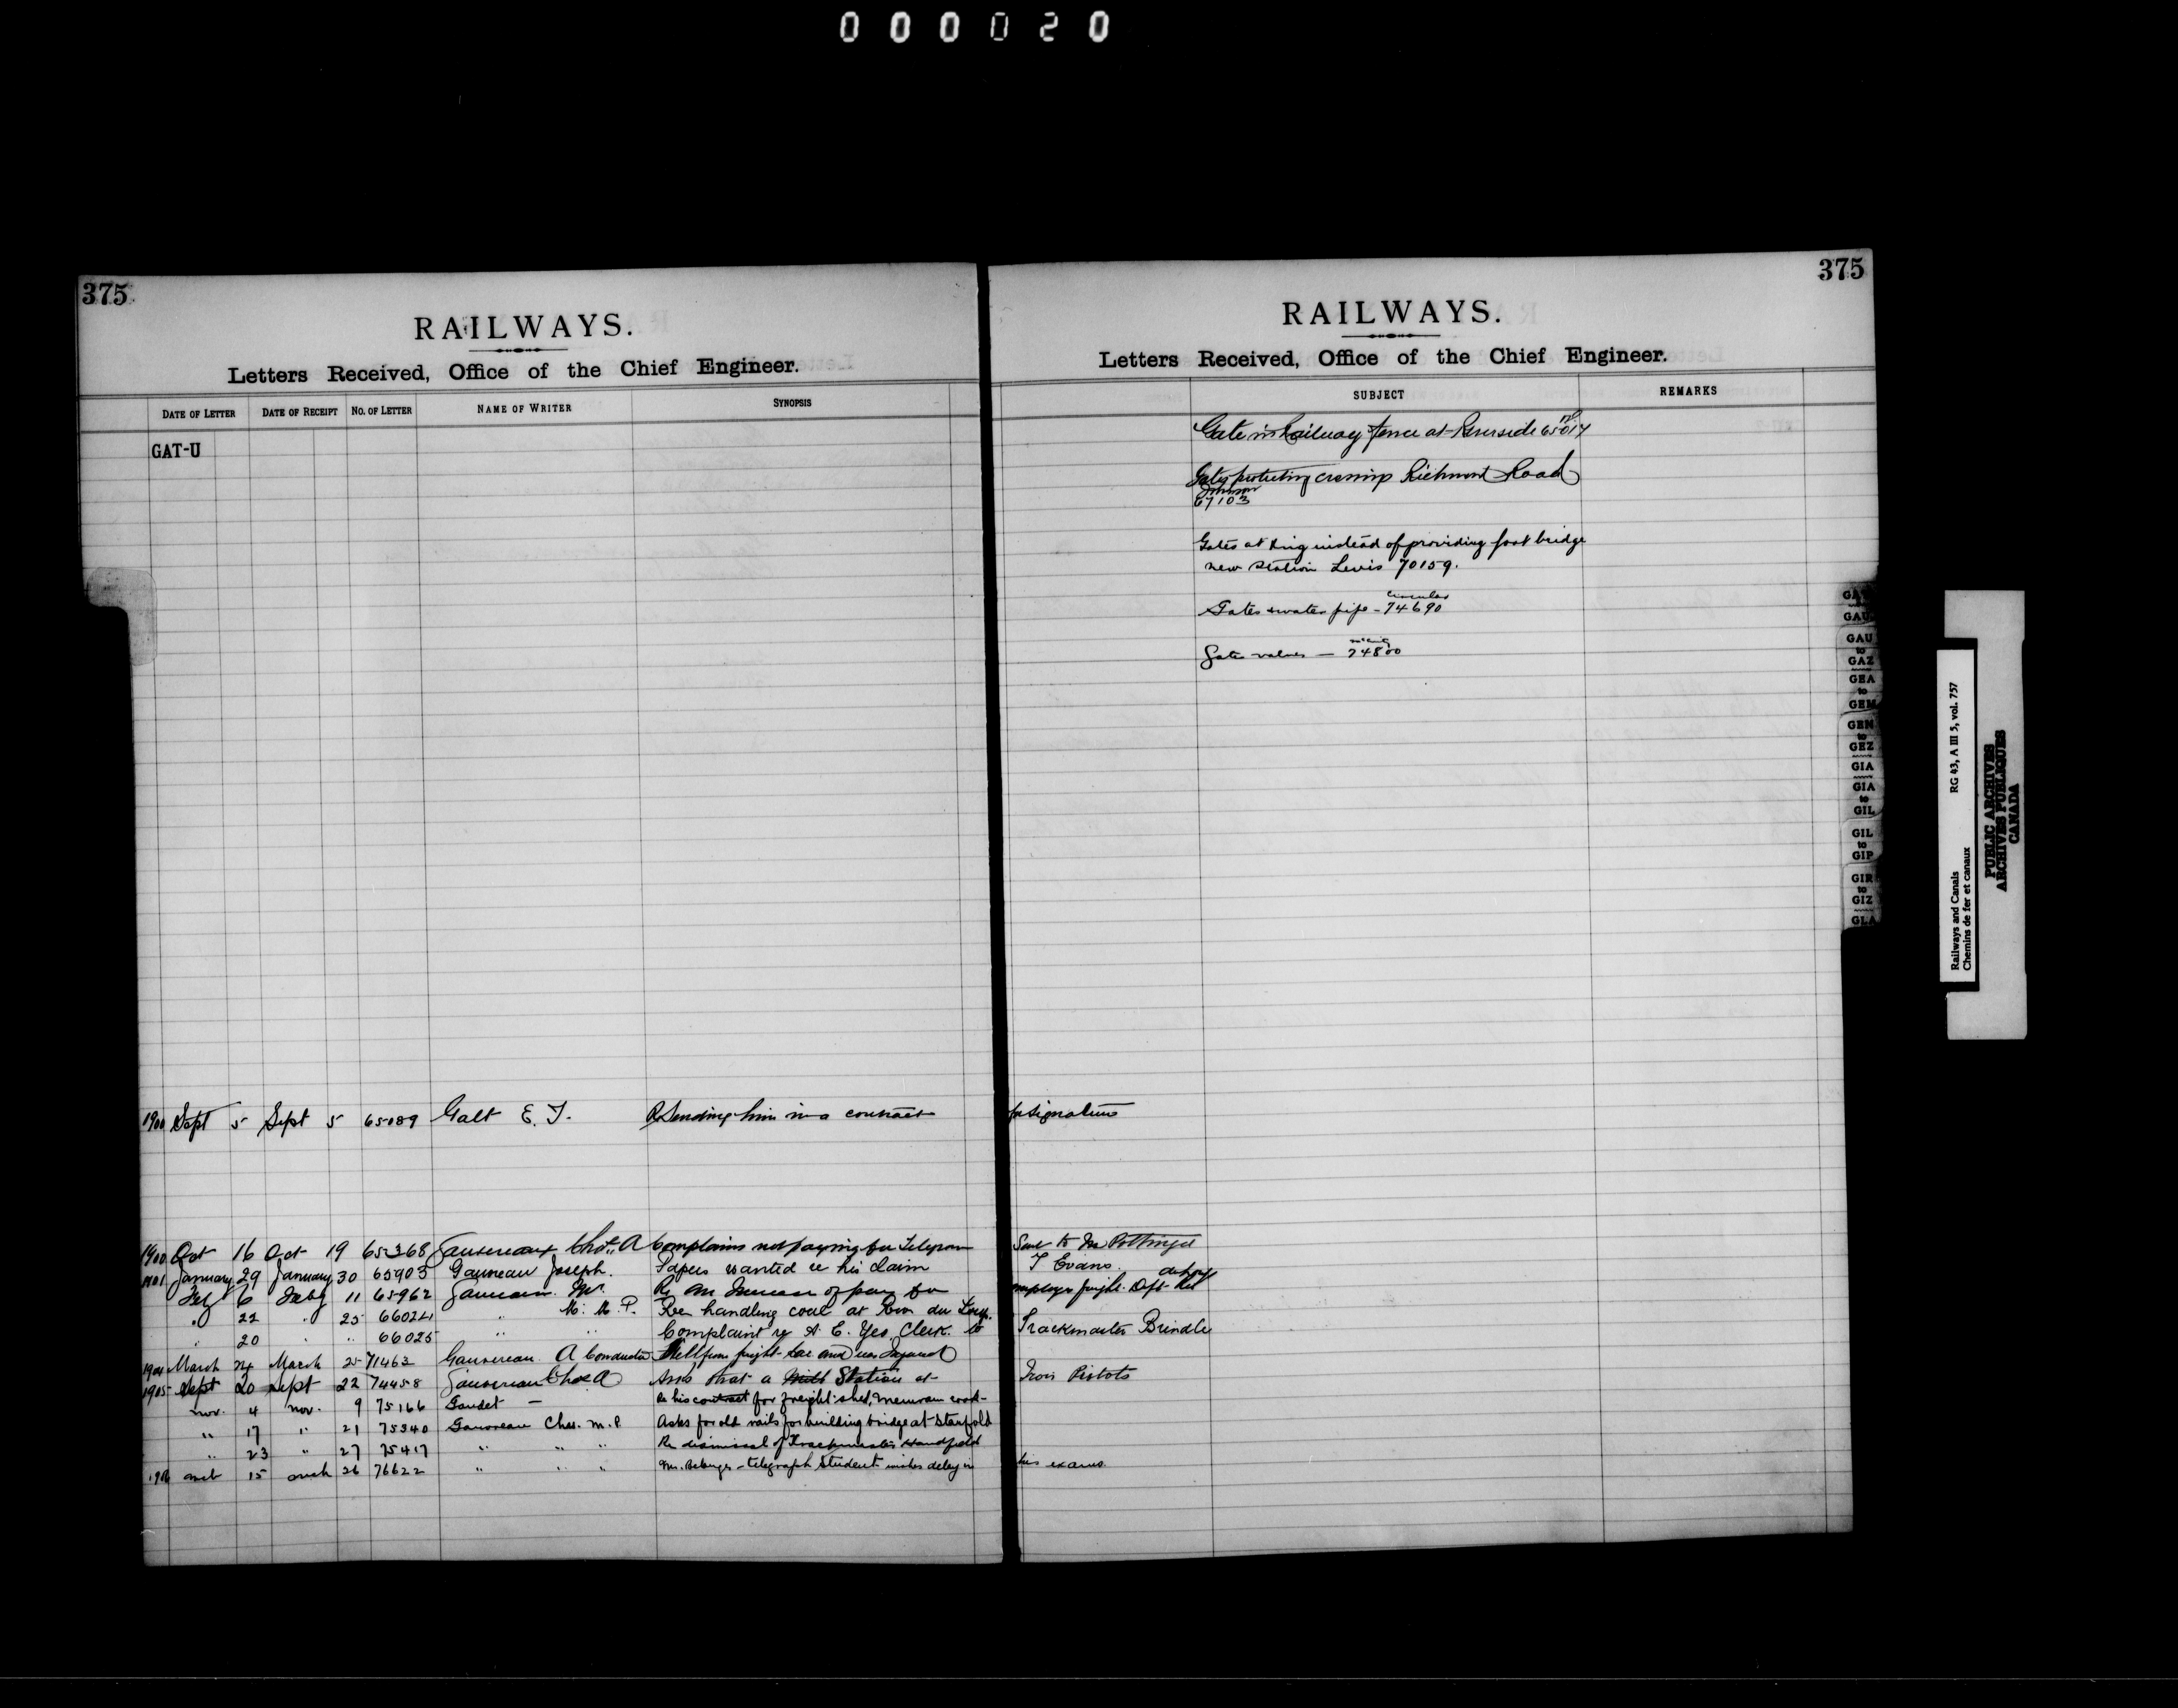 000020
375
RAILWAYS.
Letters Received, Office of the Chief Engineer.
DATE OF LETTER DATE OF RECEIPT NO. OF LETTER NAME OF WRITER SYNOPSIS
GAT-U
1900 Sept 5 Sept 5 65089 Galt E. T. Re Sending him in a contract for signature
1900 Oct 16 Oct 19 65368 Gauvreau Chas. A Complains not paying for Telegram Sent to Mr Pottinger
1901 January 29 January 30 65903 Gauvreau Joseph. Papers wanted re his claim T Evans.
Feby 6 Feby 11 65962 Gauvreau Mr. Re an Increase of pay for employes freight Dept
" 22 " 25 66024 " M. P. Re handling coal at Riv du Loup.
" 20 " " 66025 " " Complaint re A. E. Yeo, Clerk. to Trackmaster Brindle
1904 March 24 March 25 71463 Gauvreau A Conductor Fell from freight car and was Injured
1905 Sept 20 Sept 22 74458 Gauvreau Chas A Asks that a Station at Trois Pistoles
Nov. 4 Nov. 9 75166 Gaudet — Re his contract for freight shed, Memramcook
" 17 " 21 75340 Gauvreau Chas. M. P. Asks for old rails for building bridge at Stanfold
" 23 " 27 75417 " " " Re dismissal of Trackmaster Handfield
1906 Mch 15 Mch 26 76622 " " " telegraph Student wishes delay in his exams.
375
RAILWAYS.
Letters Received, Office of the Chief Engineer.
SUBJECT REMARKS
Gate in Railway fence at Riverside 65017
Gates protecting crossing Richmond Road
Johnson
67103
Gates at instead of providing foot bridge
new station Levis 70159.
circular
Gates & water pipe - 74690
Gate valves — 74800
GAU
GAU
to
GAZ
GEA
to
GEM
GEN
to
GEZ
GIA
GIA
to
GIL
GIL
to
GIP
GIR
to
GIZ
GLA
Railways and Canals RG 43, A III 5, vol. 757
Chemins de fer et canaux
PUBLIC ARCHIVES
ARCHIVES PUBLIQUES
CANADA